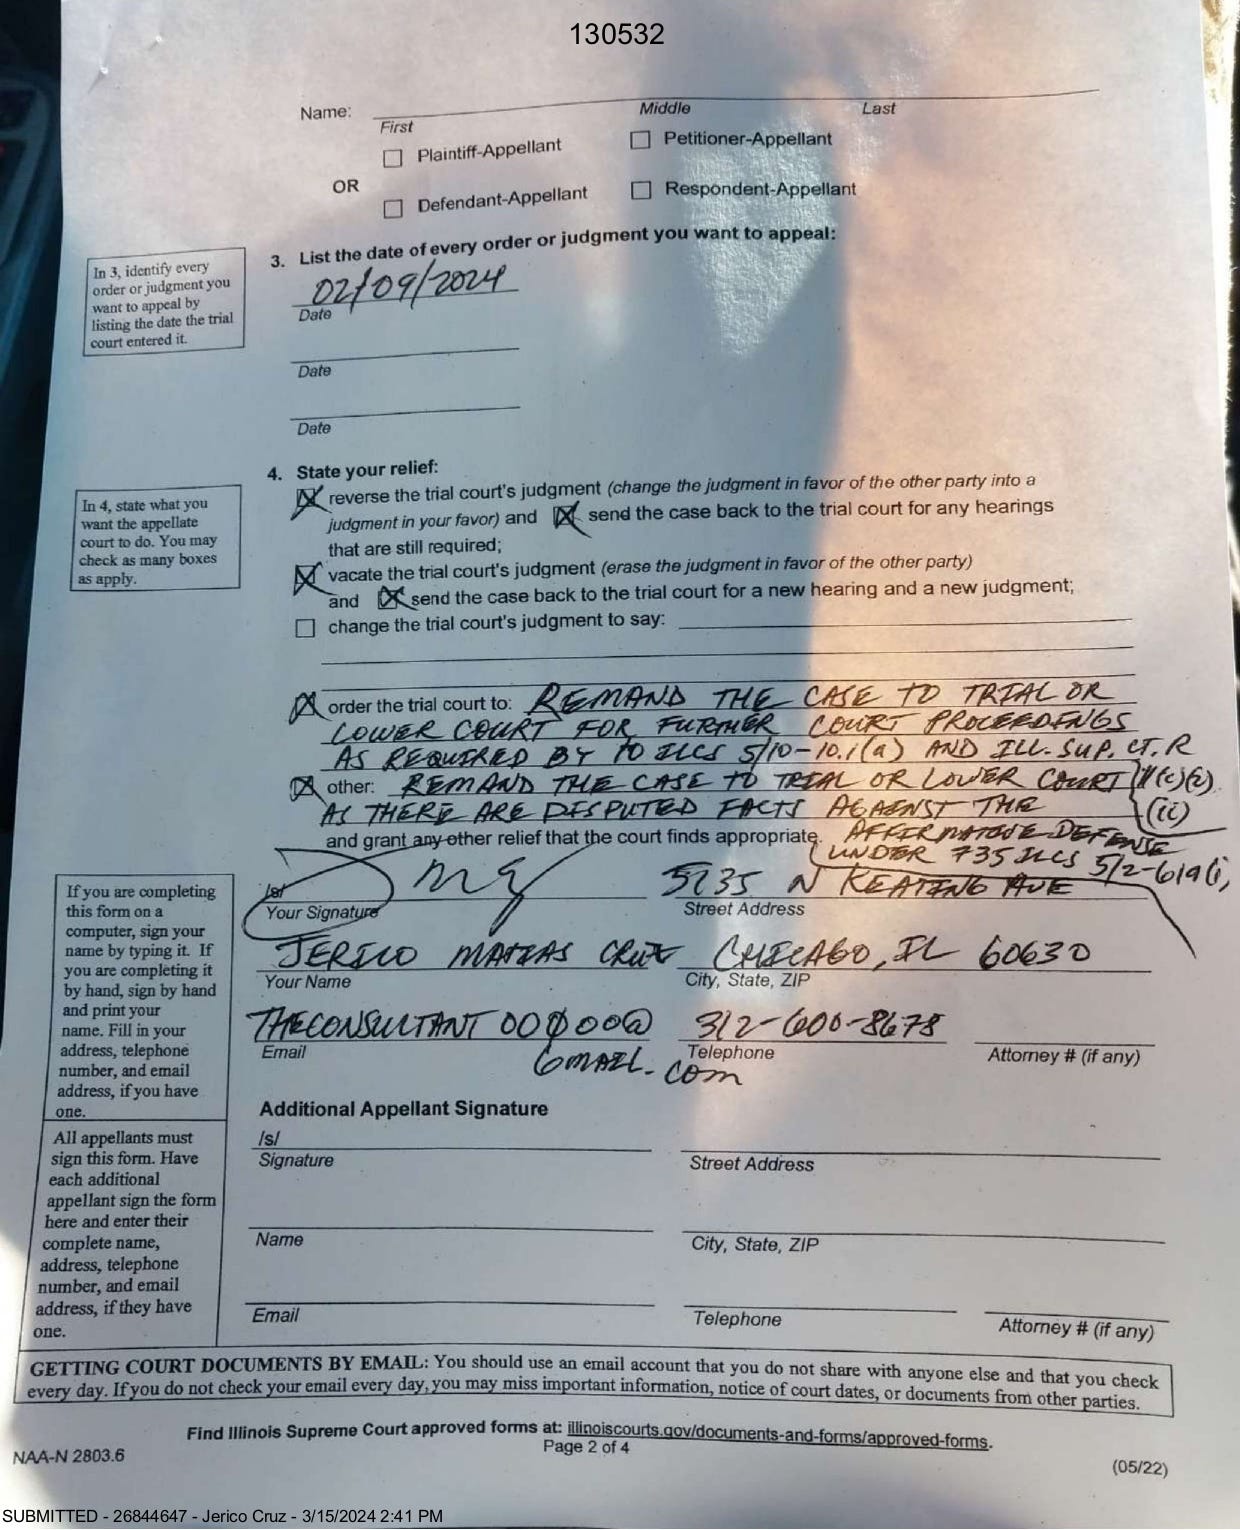 130532
Name:
First Middle Last
☐ Plaintiff-Appellant ☐ Petitioner-Appellant
OR
☐ Defendant-Appellant ☐ Respondent-Appellant
In 3, identify every
order or judgment you
want to appeal by
listing the date the trial
court entered it.
3. List the date of every order or judgment you want to appeal:
02/09/2024
Date
Date
Date
In 4, state what you
want the appellate
court to do. You may
check as many boxes
as apply.
4. State your relief:
☒ reverse the trial court's judgment (change the judgment in favor of the other party into a
judgment in your favor) and ☒ send the case back to the trial court for any hearings
that are still required;
☒ vacate the trial court's judgment (erase the judgment in favor of the other party)
and ☒ send the case back to the trial court for a new hearing and a new judgment;
☐ change the trial court's judgment to say:
☒ order the trial court to: REMAND THE CASE TO TRIAL OR
LOWER COURT FOR FURTHER COURT PROCEEDINGS
AS REQUIRED BY 10 ILCS 5/10-10.1(a) AND ILL. SUP. CT. R
☒ other: REMAND THE CASE TO TRIAL OR LOWER COURT
AS THERE ARE DISPUTED FACTS AGAINST THE (ii)
and grant any other relief that the court finds appropriate. AFFIRMATIVE DEFENSE
UNDER 735 ILCS
If you are completing
this form on a
computer, sign your
name by typing it. If
you are completing it
by hand, sign by hand
and print your
name. Fill in your
address, telephone
number, and email
address, if you have
one.
/s/ 5235 N KEATING AVE
Your Signature Street Address
JERICO MATIAS CRUZ CHICAGO, IL 60630
Your Name City, State, ZIP
THECONSULTANT00000@ 312-600-8678
Email Telephone Attorney # (if any)
GMAIL.COM
Additional Appellant Signature
All appellants must
sign this form. Have
each additional
appellant sign the form
here and enter their
complete name,
address, telephone
number, and email
address, if they have
one.
/s/
Signature Street Address
Name City, State, ZIP
Email Telephone Attorney # (if any)
GETTING COURT DOCUMENTS BY EMAIL: You should use an email account that you do not share with anyone else and that you check
every day. If you do not check your email every day, you may miss important information, notice of court dates, or documents from other parties.
Find Illinois Supreme Court approved forms at: illinoiscourts.gov/documents-and-forms/approved-forms.
NAA-N 2803.6 Page 2 of 4 (05/22)
SUBMITTED - 26844647 - Jerico Cruz - 3/15/2024 2:41 PM